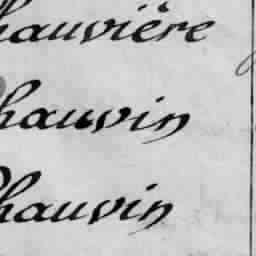 hauvière
hauvin
Chauvin